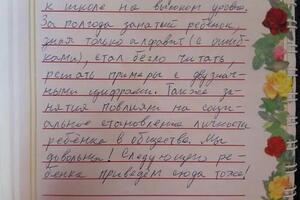 к школе на высоком уровне.
За полгода занятий ребёнок,
зная только алфавит (с ошиб-
ками), стал бегло читать,
решать примеры с двузнач-
ными цифрами. Также за-
нятия повлияли на соци-
альное становление личности
ребёнка в обществе. Мы
довольны! Следующего ре-
бёнка приведём сюда тоже!